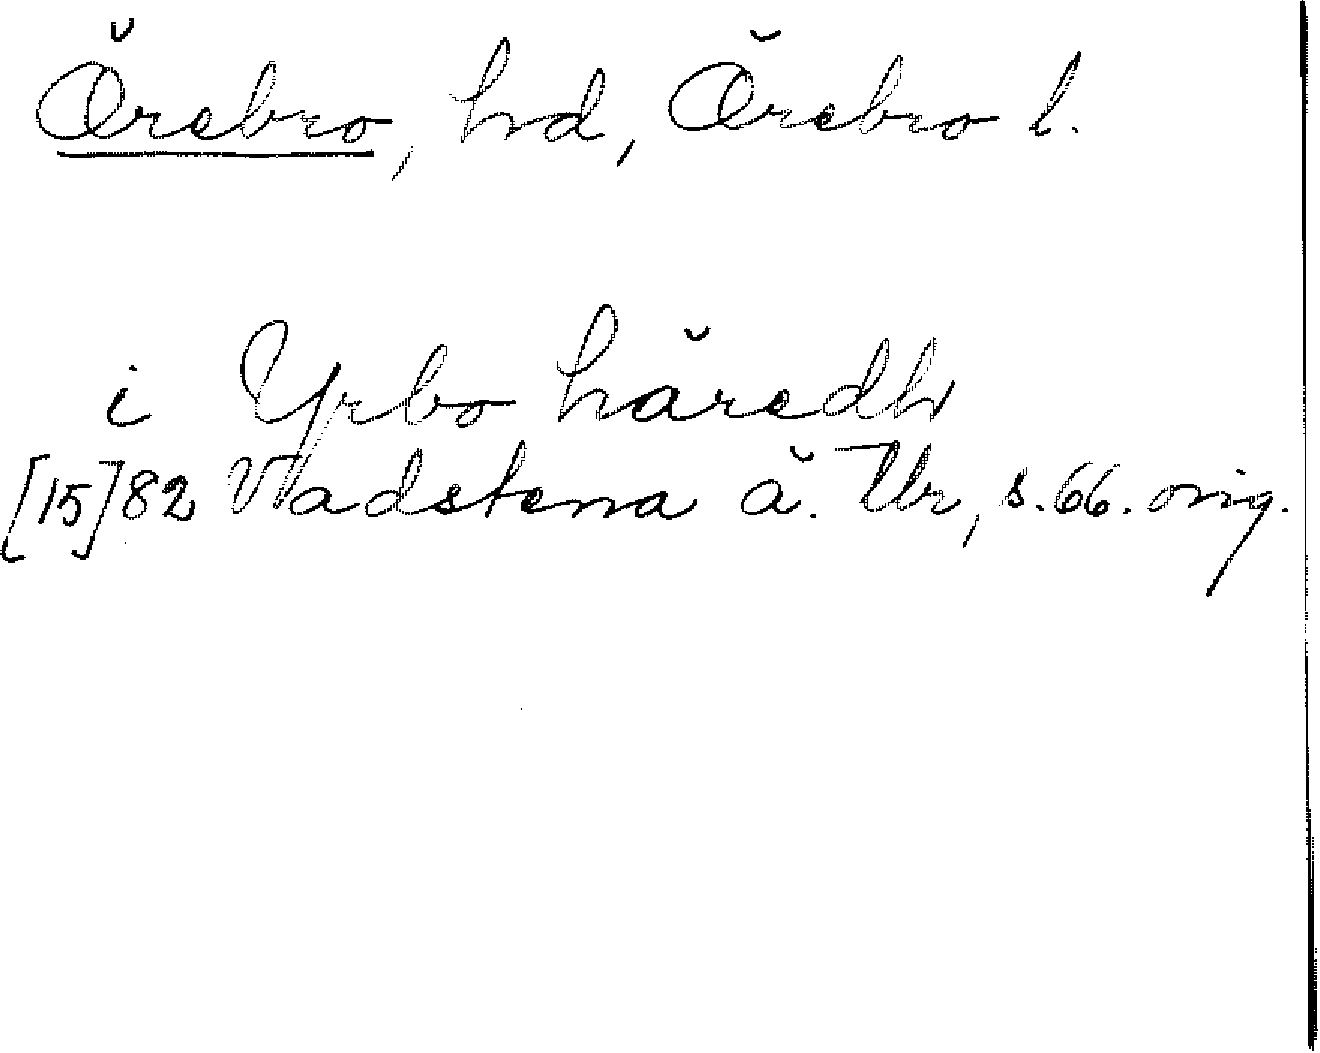 Örebro, hd, Örebro l.
i Yrbo häredh
[15]82 Vadstena ä. Tbr, s. 66. orig.